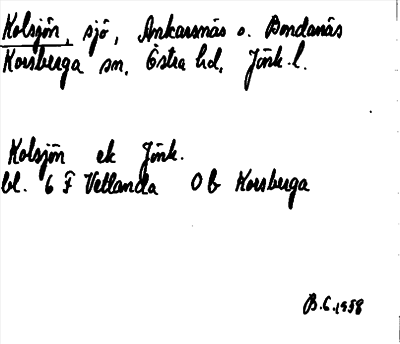 Kolsjön, sjö, Ankarsnäs o. Bondanäs
Korsberga sn, Östra hd, Jönk. l.
Kolsjön ek Jönk.
bl. 6 F Vetlanda Ob Korsberga
B.G. 1958